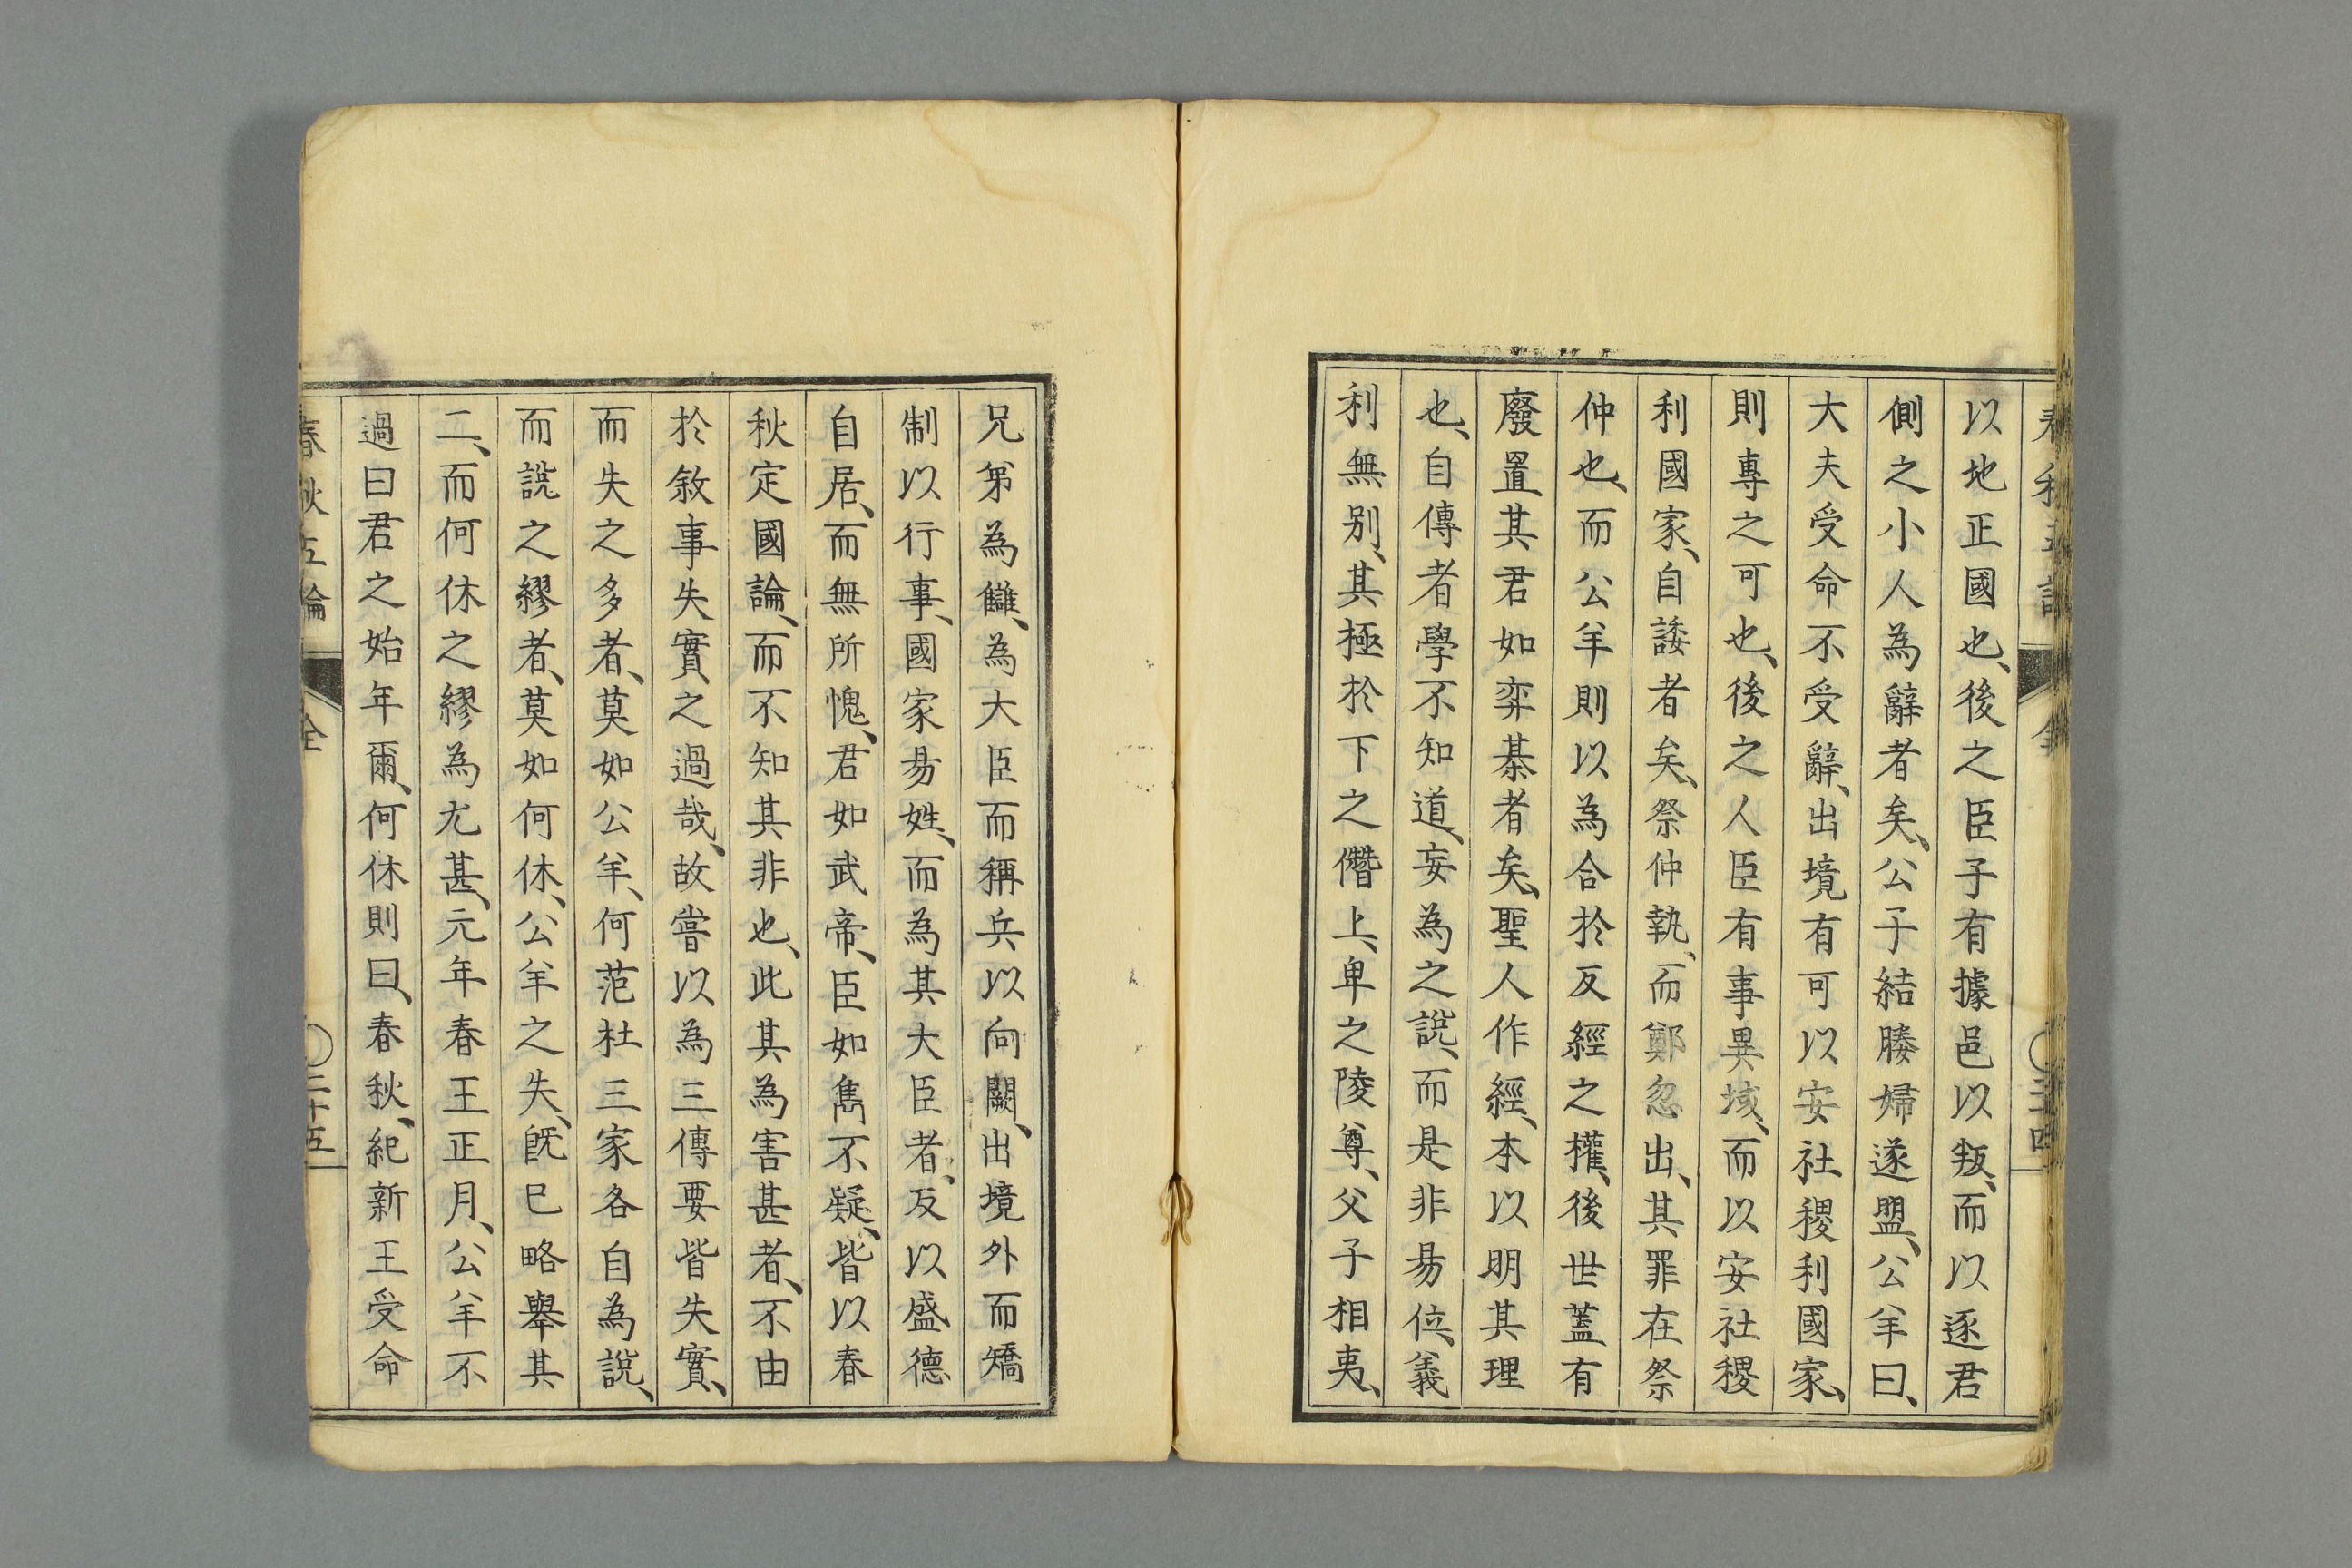 以地正國也、後之臣子有據邑以叛、而以逐君
側之小人為辭者矣、公子結媵婦遂盟、公羊曰、
大夫受命不受辭、出境有可以安社稷利國家、
則專之可也、後之人臣有事異域、而以安社稷
利國家、自諉者矣、祭仲執、而鄭忽出、其罪在祭
仲也、而公羊則以為合於反經之權、後世蓋有
廢置其君如弈棊者矣、聖人作經、本以明其理
也、自傳者學不知道、妄為之説、而是非易位、義
利無別、其極於下之僭上、卑之陵尊、父子相夷、
兄弟為讎、為大臣而稱兵以向闕、出境外而矯
制以行事、國家易姓、而為其大臣者、反以盛德
自居、而無所愧、君如武帝、臣如雋不疑、皆以春
秋定國論、而不知其非也、此其為害甚者、不由
於敘事失實之過哉、故嘗以為三傳要皆失實、
而失之多者、莫如公羊、何范杜三家各自為説、
而説之繆者、莫如何休、公羊之失、既已略舉其
二、而何休之繆為尤甚、元年春王正月、公羊不
過曰君之始年爾、何休則曰、春秋、紀新王受命
春秋五論
全
二十五